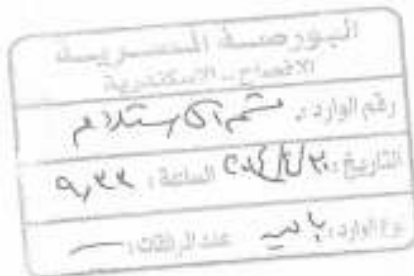 البورصة المصرية
الافصاح - الاسكندرية
رقم الوارد: تم الاستلام
التاريخ: ٢٠٢٤/٤/٣٠ الساعة: ٩,٣٣
نوع الوارد: باليد عدد المرفقات: —